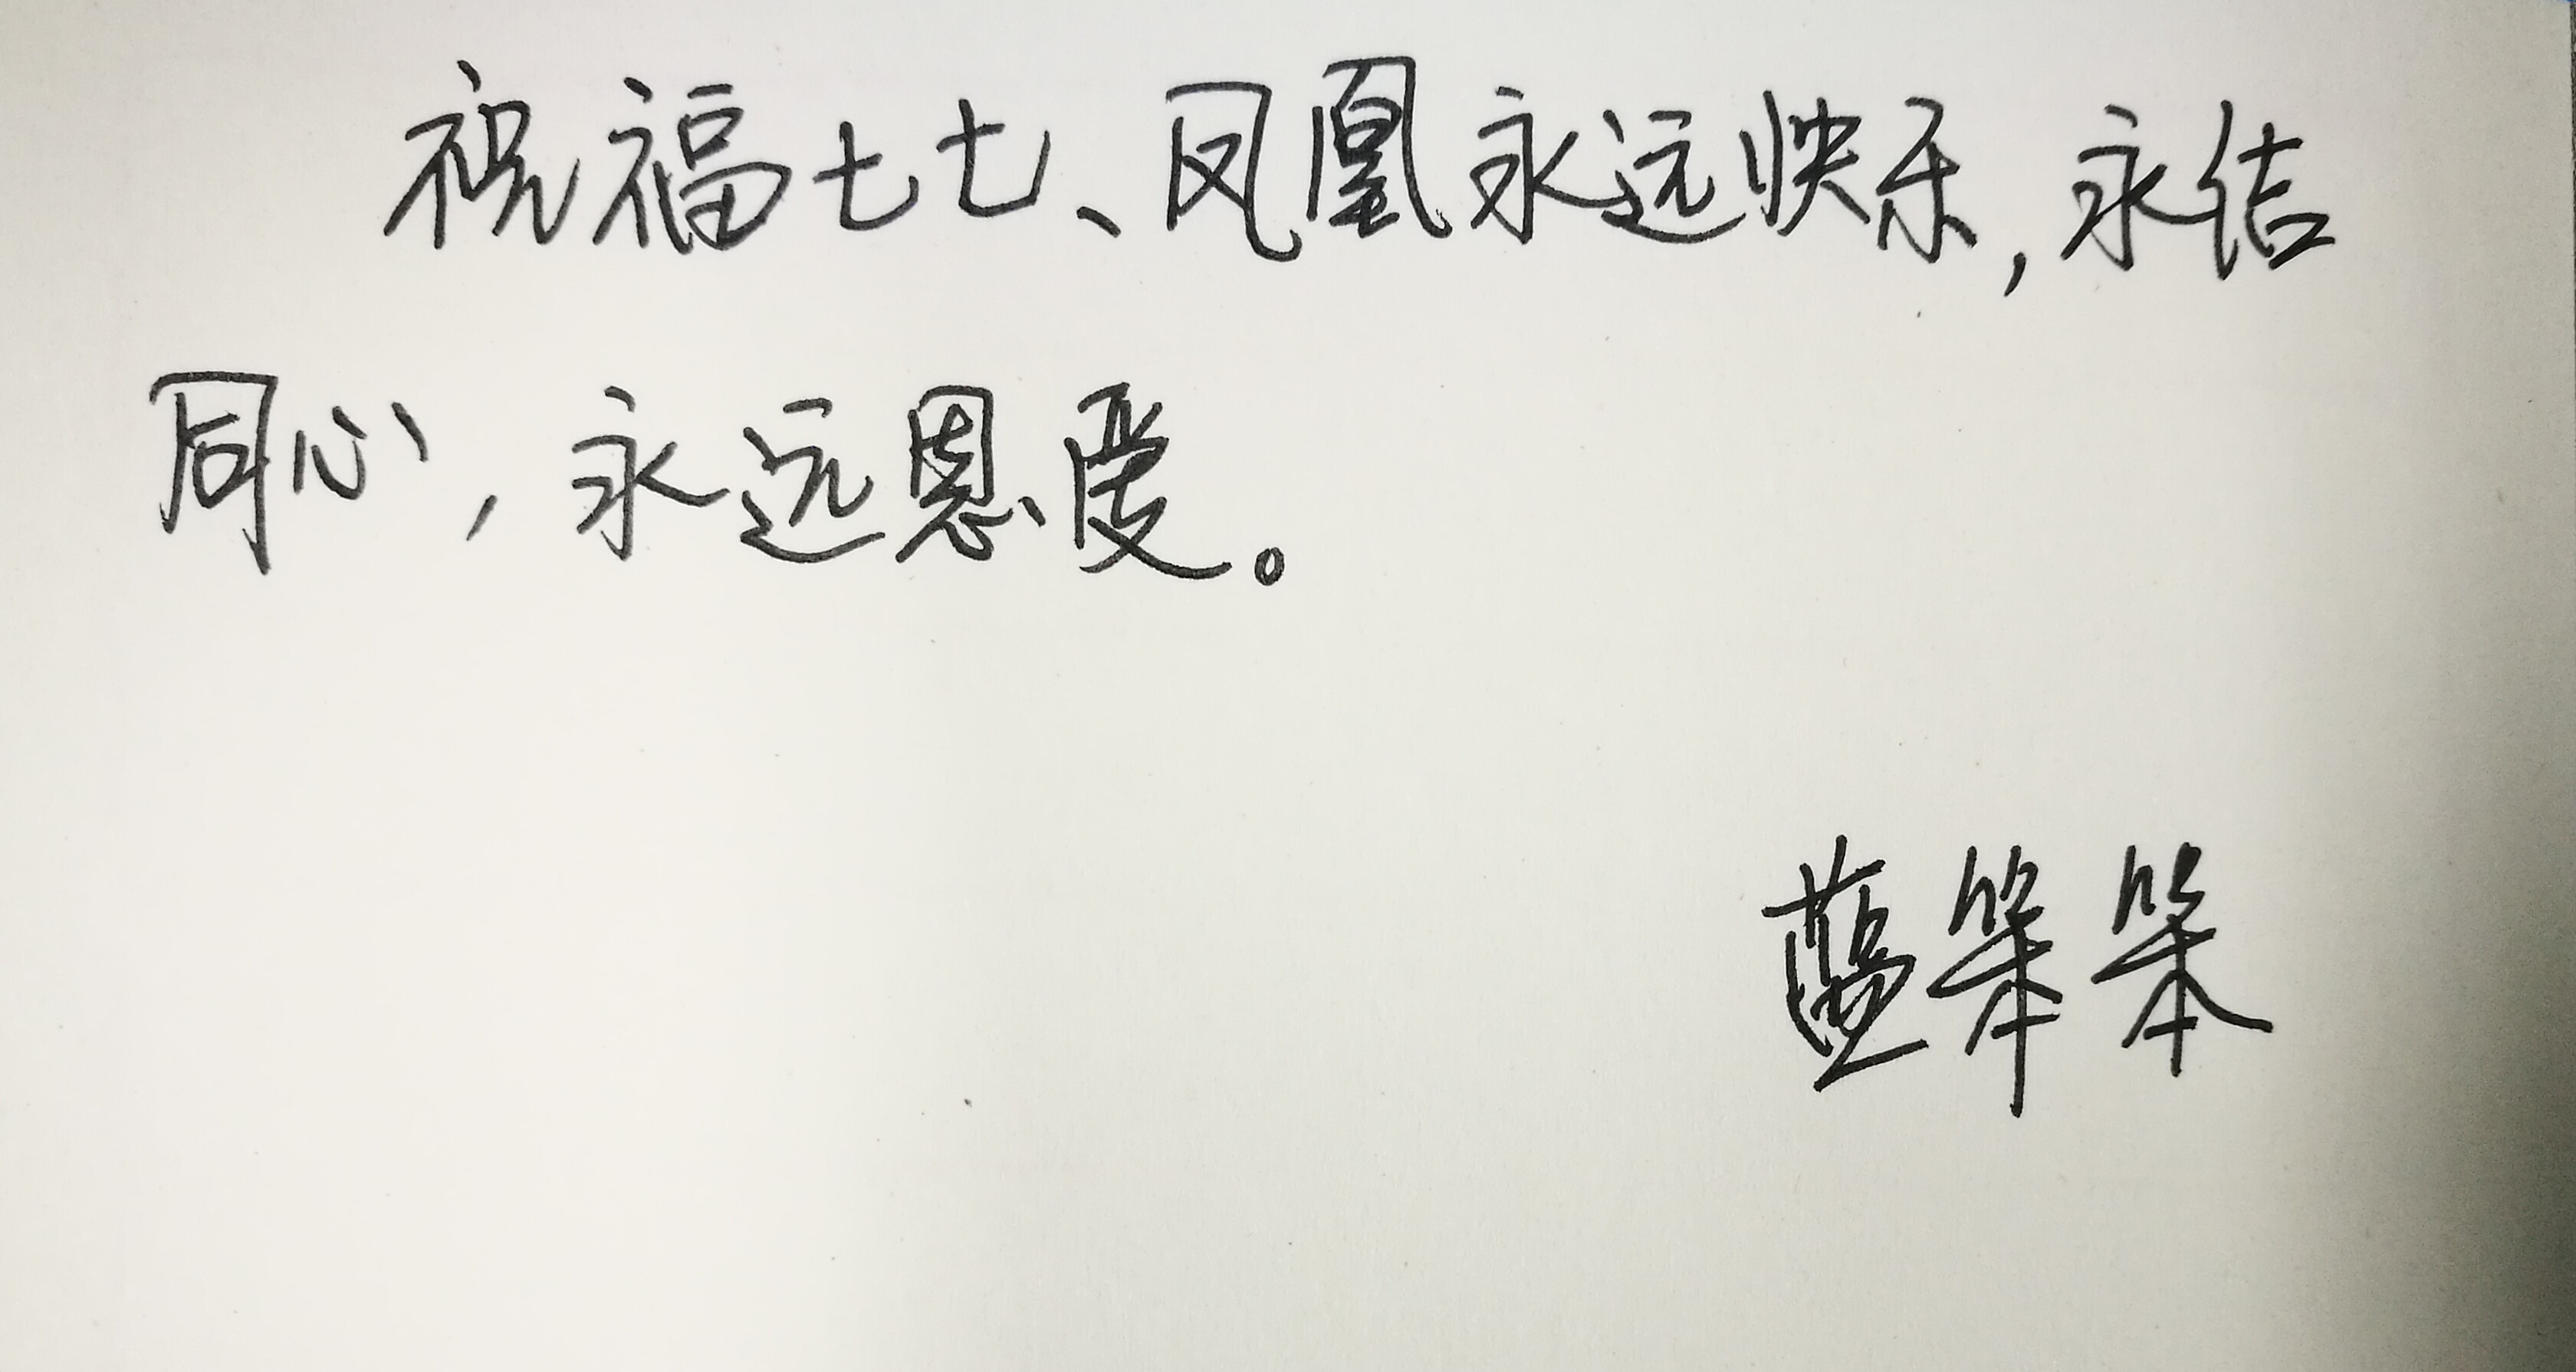 祝福七七、凤凰永远快乐,永结
同心,永远恩爱。
蓝笨笨